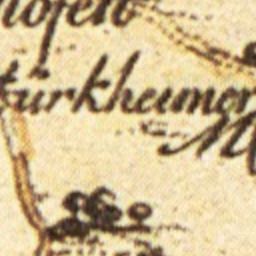 hofen
türkheimer
M